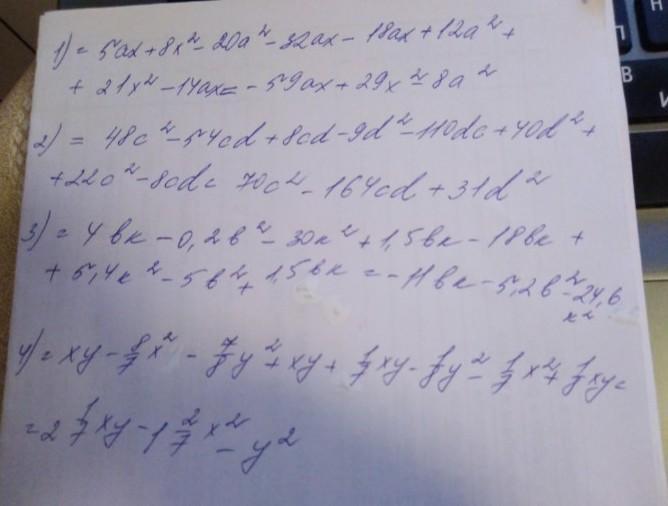 1) = 5ax + 8x² - 20a² - 32ax - 18ax + 12a² +
+ 21x² - 14ax = - 59ax + 29x² - 8a²
2) = 48c² - 54cd + 8cd - 9d² - 110dc + 40d² +
+ 22c² - 8cd = 70c² - 164cd + 31d²
3) = 4вк - 0,2в² - 30к² + 1,5вк - 18вк +
+ 5,4к² - 5в² + 1,5вк = - 11вк - 5,2в² - 24,6
к²
4) = xy - 8/7 x² - 7/8 y² + xy + 1/7 xy - 1/8 y² - 1/7 x² + 1/7 xy =
= 2 1/7 xy - 1 2/7 x² - y²